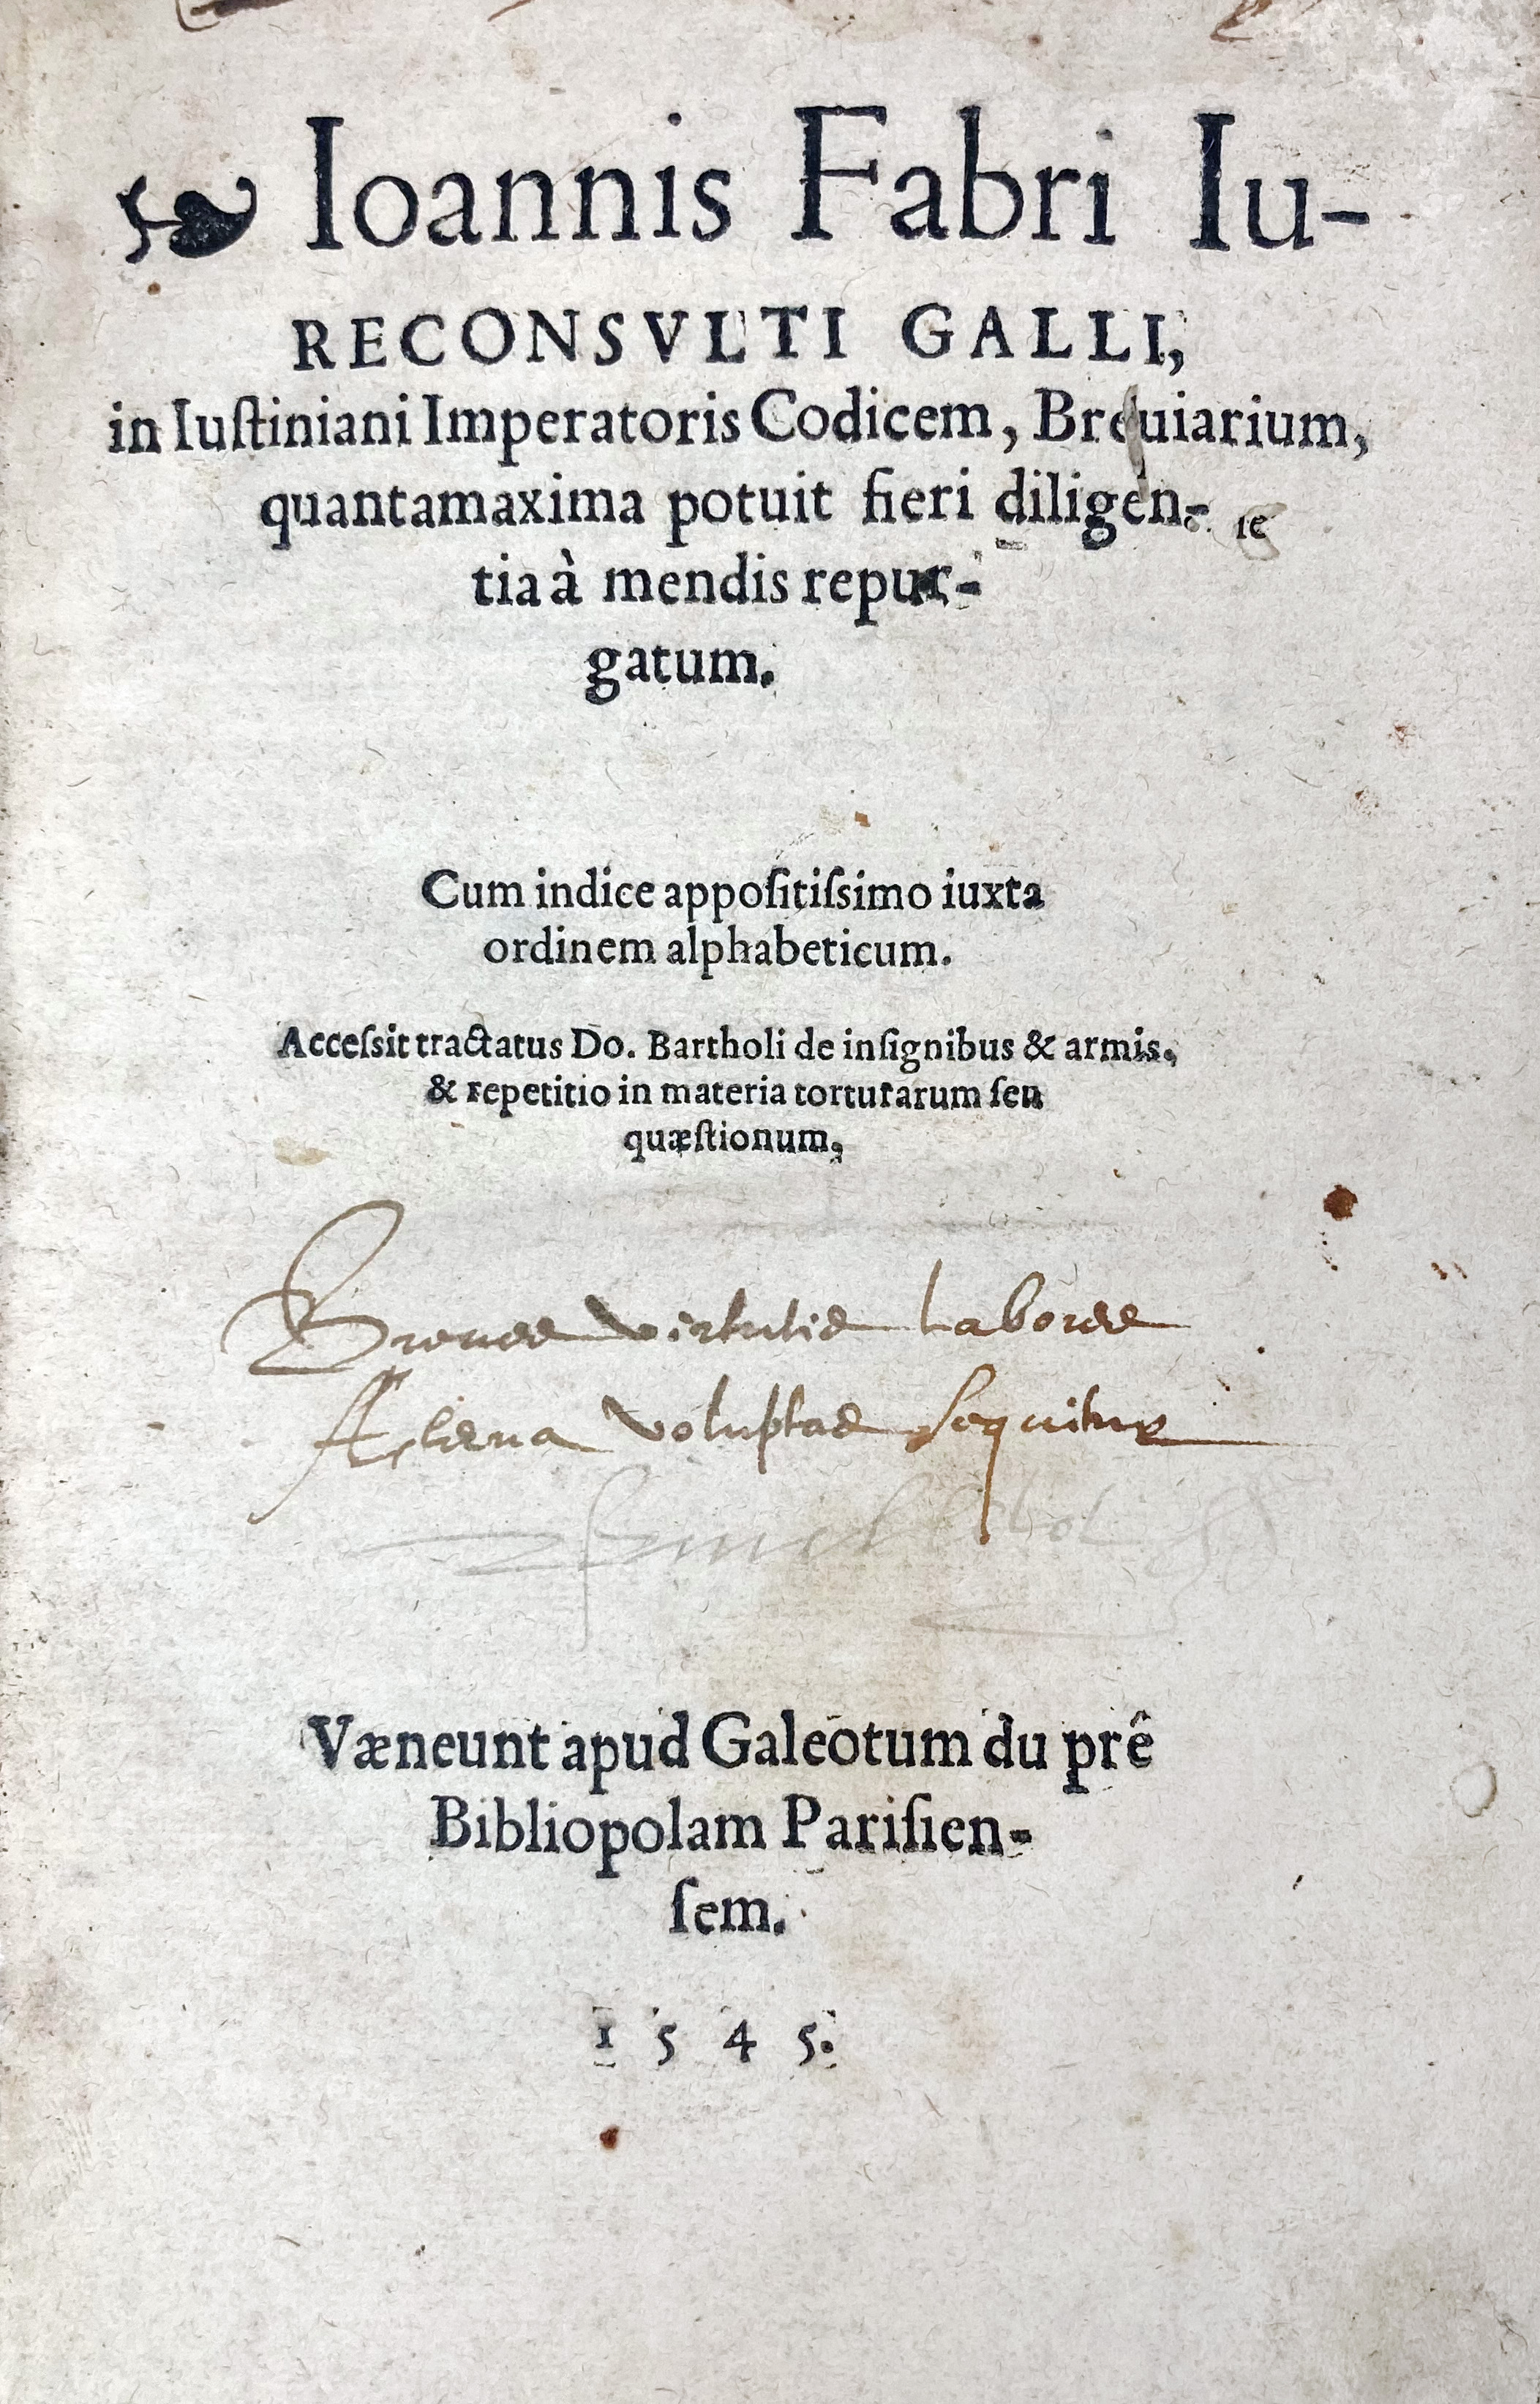 ❧ Ioannis Fabri Iu-
RECONSVLTI GALLI,
in Iuſtiniani Imperatoris Codicem, Breuiarium,
quantamaxima potuit fieri diligen-
tia à mendis repur-
gatum.
Cum indice appoſitiſsimo iuxta
ordinem alphabeticum.
Acceſsit tractatus Do. Bartholi de inſignibus & armis,
& repetitio in materia torturarum ſeu
quæſtionum,
Breues virtutis Labores
Æterna voluptas sequitur
Væneunt apud Galeotum du prê
Bibliopolam Pariſien-
ſem.
1545.